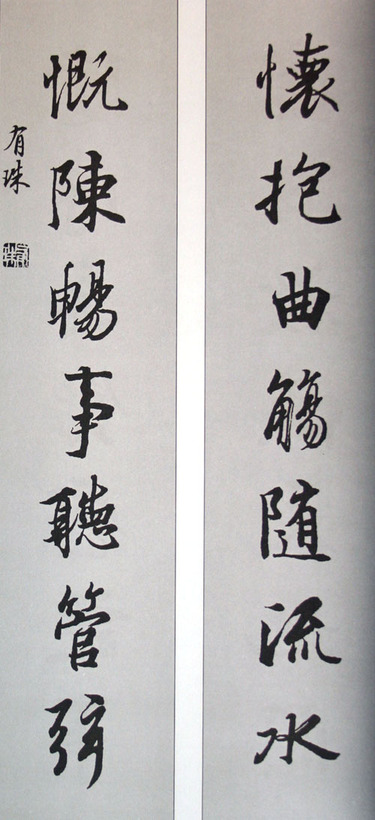 懷抱曲觴随流水
慨陳暢事聽管弦
有珠